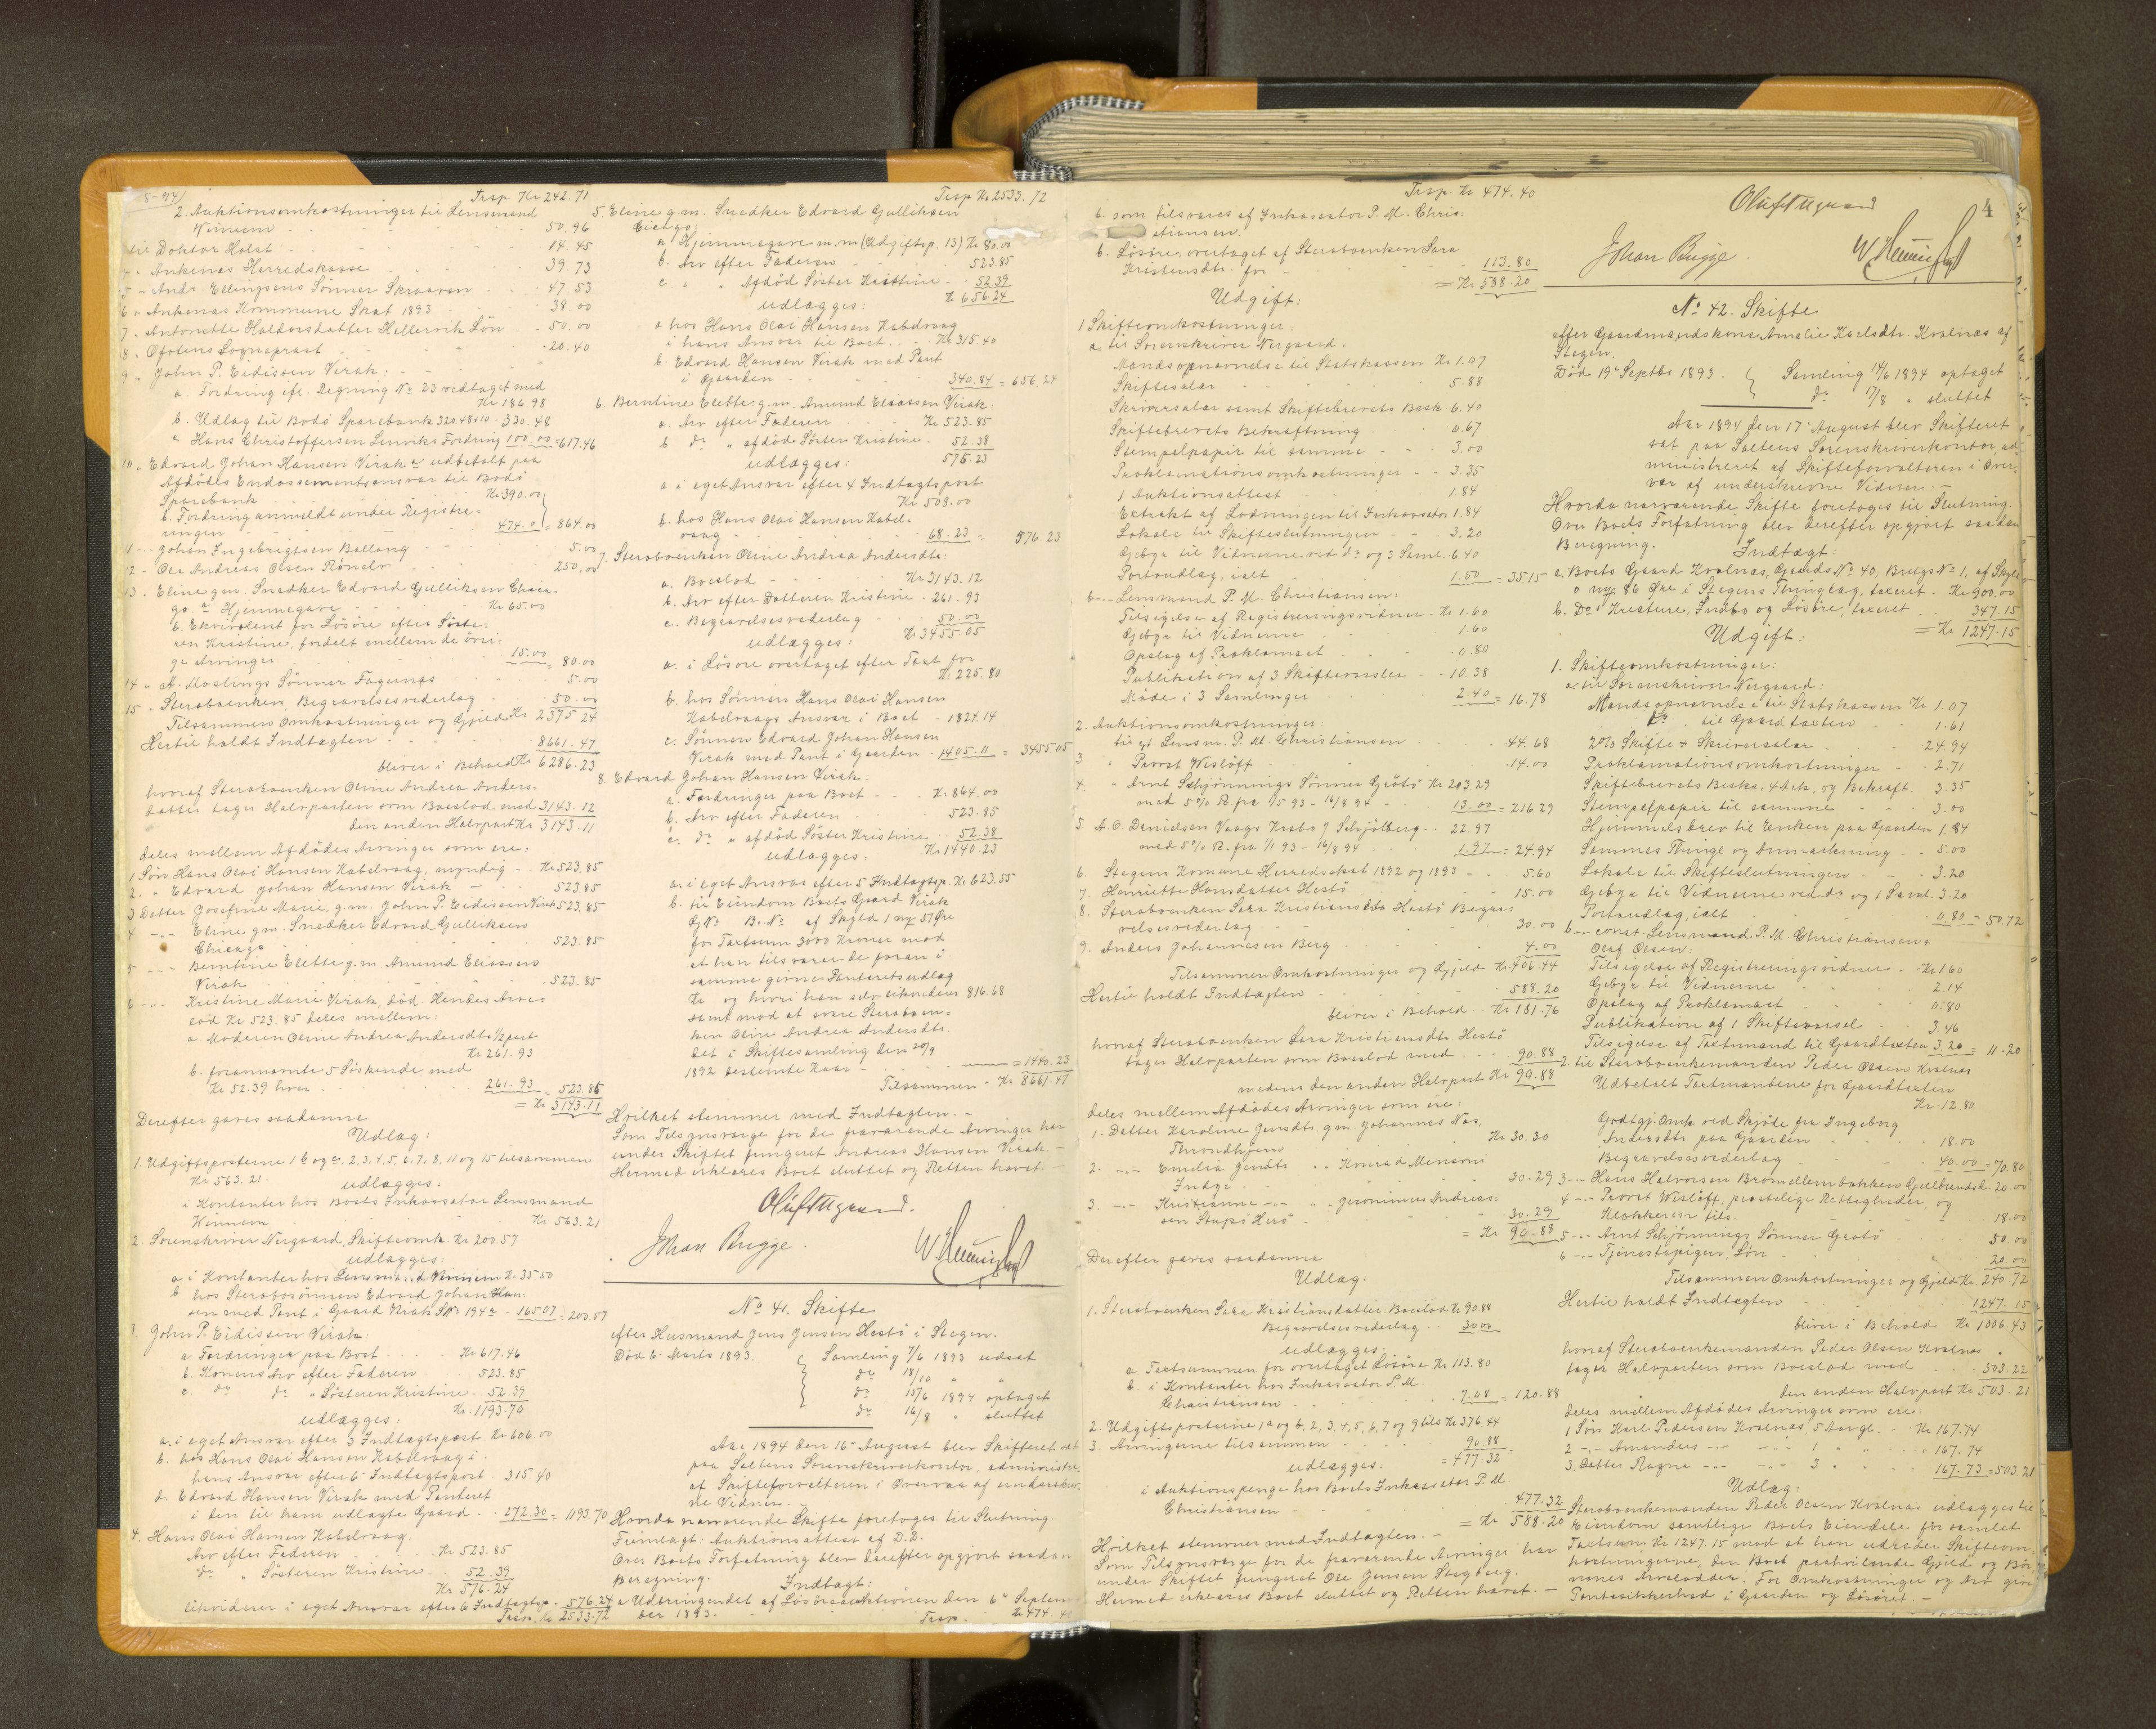 5-94)
Trsp Kr 242.71
2. Auktionsomkostninger til Lensmand
Winnem - - - 50.96
til Doktor Holst - - - 14.45
4 " Ankenæs Herredskasse - - 39.73
5 " Andr. Ellingsens Sönner Skraaven - - 47.53
6 " Ankenæs Kommune Skat 1893 - - 38.00
7 " Antonette Haldorsdatter Hellervik Lön - - 50.00
8 " Ofotens Sogneprest - - 20.40
9 " John P. Eidissen Virak: - -
a. Fordring ifl. Regning No 23 vedtaget med
Kr 186.98
b. Udlæg til Bodö Sparebank 320.48+10 - 330.48
" Hans Christoffersen Fordring 100.00 = 617.46
10 " Edvard Johan Hansen Virak a. udbetalt paa
Afdödes Endossementsansvar til Bodö
Sparebank - - Kr 390.00
b. Fordring anmeldt under Registre-
ringen - - 474.0 = 864.00
11 - - Johan Ingebrigtsen Ballang - - 5.00
12 - Ole Andreas Olsen - - 250.00
13 . Eline gm. Snedker Edvard Gulliksen Chica-
go. a Hjemmegave - - Kr 65.00
b. Ekvivalent for Lösöre efter Söste-
ren Kristine, fordelt mellem de övri-
ge Arvinger - - 15.00 = 80.00
14 " A. Moslings Sönner Fagernæs - - 5.00
15 . Sterboenken, Begravelsesvederlag - 50.00
Tilsammen Omkostninger og Gjæld Kr 2375.24
Hertil holdt Indtægten - - 8661.47
bliver i Behold Kr 6286.23
hvoraf Sterboenken Oline Andrea Anders-
datter tager Halvparten som Boeslod med 3143.12
den anden Halvpart Kr 3143.11
deles mellem Afdödes Arvinger som ere:
1 Sön Hans Olai Hansen Kabelvaag, myndig - - Kr 523.85
2. " Edvard Johan Hansen Virak - 523.85
3 Datter Josefine Marie, g.m. John P. Eidissen Virak 523.85
4 - - - Eline gm. Snedker Edvard Gulliksen
Chicago - - 523.85
5 - - - Berntine Elette g.m. Amund Eliassen
Virak - - 523.85
6 - - - Kristine Marie Virak, död. Hendes Arve-
lod Kr 523.85 deles mellem:
a Moderen Oline Andrea Andersdtr 1/2 part
Kr 261.93
b. forannævnte 5 Söskende med
Kr 52.39 hver - 261.93 523.86
= Kr 3143.11
Derefter gaves saadanne
Udlæg:
1. Udgiftsposterne 1 b og c. 2, 3, 4, 5, 6, 7, 8, 11 og 15 tilsammen
Kr 563.21. udlægges:
i Kontanter hos Boets Inkassator Lensmand
Winnem - - Kr 563.21
2. Sorenskriver Nergaard, Skifteomk. Kr 200.57
udlægges:
a. i Kontanter hos Lensmand Winnem Kr 35.50
b hos Sterbosönnen Edvard Johan Han-
sen med Pant i Gaard Virak No 194 a - 165.07 = 200.57
3. John P. Eidissen Virak:
a Fordringer paa Boet - - Kr 617.46
b. Konens Arv efter Faderen - 523.85
c. do do " Sösteren Kristine - 52.39
Kr. 1193.70
udlægges:
a. i eget Ansvar efter 3 Indtægtspost. Kr 606.00
b. hos Hans Olai Hansen Kabelvaag i
hans Ansvar efter 6 Indtægtspost. 315.40
d. Edvard Hansen Virak med Panteret
i den til ham udlagte Gaard - 272.30 = 1193.70
4. Hans Olai Hansen Kabelvaag.
Arv efter Faderen - - Kr 523.85
do " Sösteren Kristine - 52.39
Kr 576.24
likviderer i eget Ansvar efter 6 Indtægtsp. - 576.24
Trsp. Kr 2533.72
Trsp Kr 2533.72
5 Eline g.m. Snedker Edvard Gulliksen
Cicago:
a. Hjemmegave m.m (Udgiftsp. 13) Kr 80.00
b. Arv efter Faderen - - 523.85
c. " " Afdöd Söster Kristine - 52.39
Kr 656.24
udlægges:
a hos Hans Olai Hansen Kabelvaag
i hans Ansvar til Boet - - Kr 315.40
b. Edvard Hansen Virak med Pant
i Gaarden - - 340.84 = 656.24
6. Berntine Elette g.m. Amund Eliassen Virak:
a. Arv efter Faderen - Kr 523.85
b do " afdöde Söster Kristine - 52.38
576.23
udlægges:
a i eget Ansvar efter 4 Indtægtspost
Kr 508.00
b. hos Hans Olai Hansen Kabel-
vaag - - 68.23 = 576.23
7. Sterboenken Oline Andrea Andersdtr:
a. Boeslod - - Kr 3143.12
b. Arv efter Datteren Kristine - 261.93
c. Begravelsesvederlag - 50.00
Kr 3455.05
udlægges:
a. i Lösöre overtaget efter Taxt for
Kr 225.80
b. hos Sönnen Hans Olai Hansen
Kabelvaags Ansvar i Boet - 1824.14
c. Sönnen Edvard Johan Hansen
Virak med Pant i Gaarden - 1405.11 = 3455.05
8. Edvard Johan Hansen Virak:
a. Fordringer paa Boet - - Kr 864.00
b. Arv efter Faderen - 523.85
c. do " afdöd Söster Kristine - 52.38
Kr 1440.23
udlægges:
a. i eget Ansvar efter 5 Indtægtsp. Kr 623.55
b. til Eiendom Boets Gaard Virak
G No B. No af Skyld 1 my 57 Öre
for Taxtsum 3000 Kroner mod
at han tilsvarer de foran i
samme givne Panteretsudlæg
Kr og hvori han selv likviderer 816.68
samt mod at svare Sterboen-
ken Oline Andrea Andersdtr.
det i Skiftesamling den 20/9
1892 bestemte Kaar - = 1440.23
Tilsammen - Kr 8661.47
Hvilket stemmer med Indtægten. -
Som Tilsynsværge for de fraværende Arvinger har
under Skiftet fungeret Andreas Hansen Virak -
Hermed erklæres Boet sluttet og Retten hævet. -
Oluf Nergaard.
Johan Brygge.
No 41. Skifte
efter Husmand Jens Jensen Hestö i Stegen.
Död 6. Marts 1893.
Samling 7/6 1893 udsat
do 18/10 " "
do 13/6 1894 optaget
do 16/8 " sluttet
Aar 1894 den 16 August blev Skifteret sat
paa Saltens Sorenskriverkontor, administre-
af Skifteforvalteren i Overvær af underskrev-
ne Vidner. -
Hvorda nærværende Skifte foretoges til Slutning.
Fremlagt: Auktionsattest af D.D.
Over Boets Forfatning blev derefter opgjort saadan
Beregning.
Indtægt:
a Udbringendet af Lösöreauktionen den 6 Septem-
ber 1893. Trsp. Kr 474.40
4
Trsp. Kr 474.40
6. som tilsvares af Inkassator P. M. Chris-
tiansen.
b. Lösöre, overtaget af Sterboenken Sara
Kristensdtr. for - - 113.80
= Kr 588.20
Udgift:
1 Skifteomkostninger:
a. til Sorenskriver Nergaard.
Mandsopnævnelse til Statskassen Kr 1.07
Skiftesalær - - 5.88
Skriversalær samt Skiftebrevets Besk. 6.40
Skiftebrevets Bekræftning - 0.67
Stempelpapir til samme - - 3.00
Proklamationsomkostninger - - 3.35
1 Auktionsattest - - 1.84
Extrakt af Lodningen til Inkassator 1.84
Lokale til Skifteslutningen - - 3.20
Gebyr til Vidnerne ved do og 3 Saml. 6.40
Portoudlæg, ialt - - 1.50 = 35.15
b - - Lensmand P. M. Christiansen:
Tilsigelse af Registreringsvidner - Kr 1.60
Gebyr til Vidnerne - - 1.60
Opslag af Proklamaet - 0.80
Publikation af 3 Skiftevarsler - - 10.38
Möde i 3 Samlinger - 2.40 = 16.78
2. Auktionsomkostninger:
til Lensm. P. M. Christiansen - - 44.68
3 " Provst Wislöff - - 14.00
4. " Arnt Schjönnings Sönner Grötö Kr 203.29
med 5% R. fra 1/5 93 - 16/8 94 - 13.00 = 216.29
5 A. O. Danielsen Vaags Krsbo / Schjölberg - 22.97
med 5% R. fra 1/1 93 - 16/8 94 - 1.97 = 24.94
6. Stegens Komune Herredsskat 1892 og 1893 - - 5.60
7. Henriette Hansdatter Hestö - 15.00
8. Sterboenken Sara Kristiansdtr Hestö Begra-
velsesvederlag - - 30.00
9. Anders Johannesen Berg - 4.00
Tilsammen Omkostninger og Gjæld Kr 406.44
Hertil holdt Indtægten - - 588.20
bliver i Behold - Kr 181.76
hvoraf Sterboenken Sara Kristiansdtr Hestö
tager Halvparten som Boeslod med - - 90.88
medens den anden Halvpart Kr 90.88
deles mellem Afdödes Arvinger som ere:
1. Datter Karoline Jensdtr. gm. Johannes Næs,
Throndhjem - - Kr 30.30
2. - - - Emelie Jensdtr " " Konrad Mensoni
Indre - - 30.29
3. - - - Kristianne - - - " " Jeronimus Andreas-
sen Stapö Herö - 30.29
= Kr 90.88
Derefter gaves saadanne
Udlæg:
1. Sterboenken Sara Kristiansdatter Boeslod Kr 90.88
Begravelsesvederlag - - 30.00
udlægges:
a Taxtsummen for overtaget Lösöre Kr 113.80
b. i Kontanter hos Inkassator P. M.
Christiansen - - 7.08 = 120.88
2. Udgiftsposterne 1 a og b, 2, 3, 4, 5, 6, 7 og 9 tils Kr 376.44
3. Arvingerne tilsammen - - 90.88
= 477.32
udlægges:
i Auktionspenge hos Boets Inkassator P. M.
Christiansen - - 477.32
= Kr 588.20
Hvilket stemmer med Indtægten. -
Som Tilsynsværge for de fraværende Arvinger har
under Skiftet fungeret Ole Jensen Stegberg.
Hermed erklæres Boet sluttet og Retten hævet. -
Oluf Nergaard
Johan Brygge.
No 42. Skifte
efter Gaardmandskone Amalie Karlsdtr. Kvalnæs af
Stegen.
Död 19 Septbr 1893.
Samling 14/6 1894 optaget
do 17/8 " sluttet
Aar 1894 den 17 August blev Skifteret
sat paa Saltens Sorenskriverkontor, ad-
ministreret af Skifteforvalteren i Over-
vær af underskrevne Vidner. -
Hvorda nærværende Skifte foretoges til Slutning.
Over Boets Forfatning blev derefter opgjort saadan
Beregning.
Indtægt:
a. Boets Gaard Kvalnæs, Gaards No 40, Brugs No 1, af Skyld
0 my 86 Öre i Stegens Thinglag, taxeret. Kr 900.00
b. Do Kreature, Indbo og Lösöre, taxeret - 347.15
= Kr 1247.15
Udgift:
1. Skifteomkostninger:
a til Sorenskriver Nergaard:
Mandsopnævnelse til Statskassen Kr 1.07
Do til Gaardtaxten - 1.61
2% Skifte & Skriversalær - - 24.94
Proklamationsomkostninger - - 2.71
Skiftebrevets Besk., 4 Ark, og Bekræft. 3.35
Stempelpapir til samme - - 3.00
Hjemmelsbrev til Enken paa Gaarden 1.84
Sammes Thingl og Anmærkning - - 5.00
Lokale til Skifteslutningen - - 3.20
Gebyr til Vidnerne ved do og 1 Saml. 3.20
Portoudlæg, ialt - 0.80 = 50.72
b - - const. Lensmand P. M. Christiansen &
Olaf Olsen:
Tilsigelse af Registreringsvidner - - Kr 1.60
Gebyr til Vidnerne - - 2.14
Opslag af Proklamaet - - 0.80
Publikation af 1 Skiftevarsel - 3.46
Tilsigelse af Taxtmænd til Gaardtaxten 3.20 = 11.20
2. til Sterboenkemanden Peder Olsen Kvalnæs
Udbetalt Taxtmændene for Gaardtaxten
Kr. 12.80
Godtgj. Omk ved Skjöde fra Ingeborg
Andersdtr paa Gaarden - 18.00
Begravelsesvederlag - - 40.00 = 70.80
3 - - Hans Halvorsen Bromellembakken Gulbrandsd. 20.00
4 - - Provst Wislöff, prestelige Rettigheder, og
Klokkeren tils. - - 18.00
5 - - Arnt Schjönnings Sönner Grötö - 50.00
6 - - Tjenestepigen, Lön - - 20.00
Tilsammen Omkostninger og Gjæld Kr. 240.72
Hertil holdt Indtægten - 1247.15
bliver i Behold Kr 1006.43
hvoraf Sterboenkemanden Peder Olsen Kvalnæs
tager Halvparten som Boeslod med - 503.22
den anden Halvpart Kr 503.21
deles mellem Afdödes Arvinger som ere:
1 Sön Karl Pedersen Kvalnæs, 5 Aar gl. - Kr 167.74
2 - - - Amandus - - - - - - 1 " " 167.74
3. Datter Ragna - - - - - - 3 " " 167.73 = 503.21
Udlæg:
Sterboenkemanden Peder Olsen Kvalnæs udlægges til
Eiendom samtlige Boets Eiendele for samlet
Taxtsum Kr 1247.15 mod at han udreder Skifteom-
kostningerne, den Boet paahvilende Gjæld og Bör-
nenes Arvelodder. For Omkostninger og Arv gives
Pantesikkerhed i Gaarden og Lösöret. -